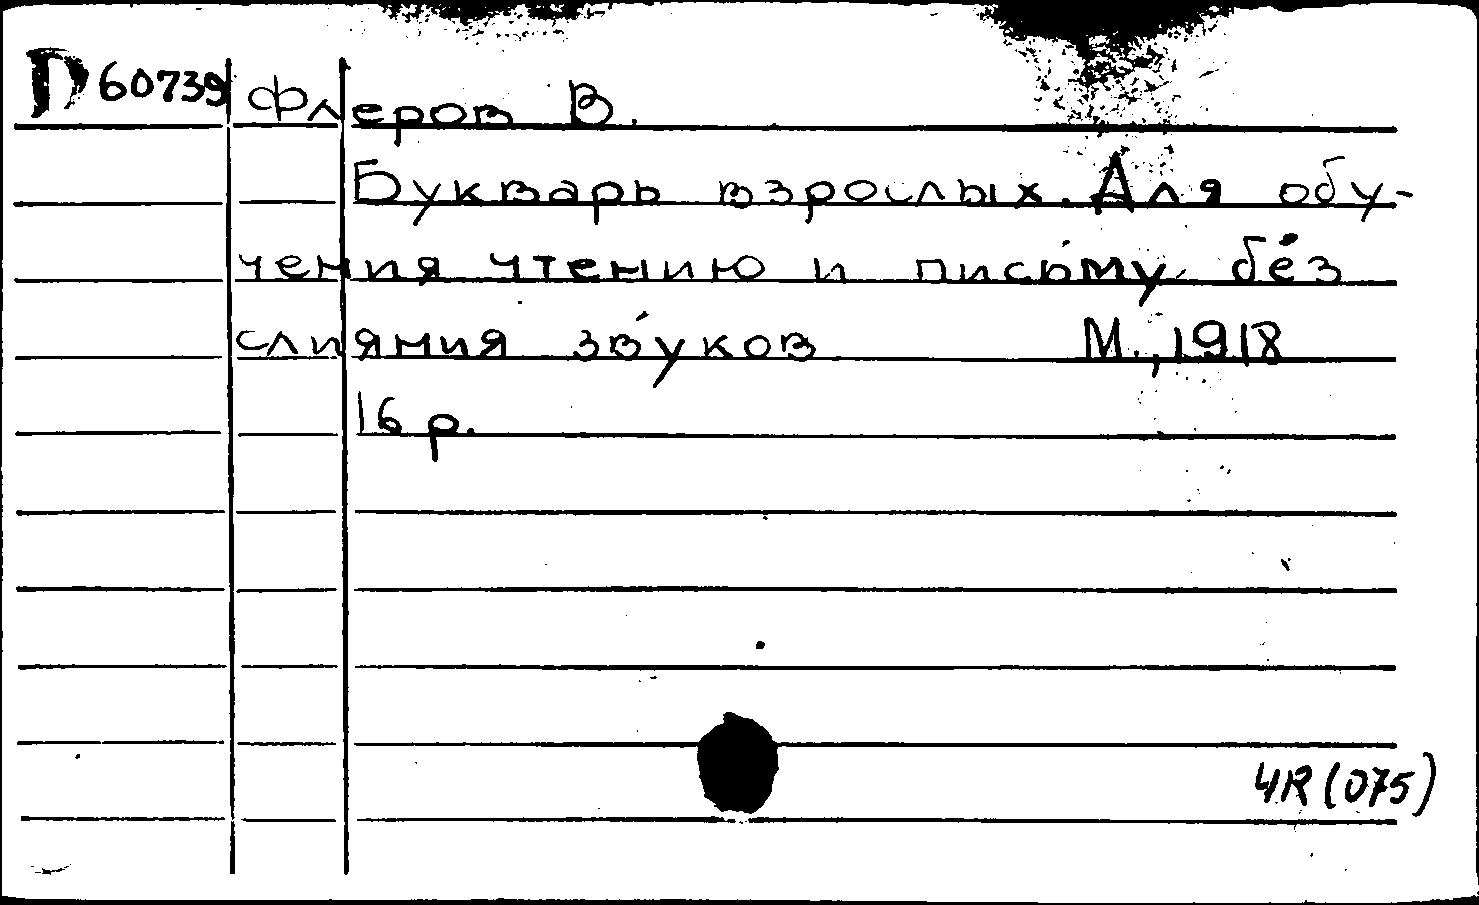 D 60739 Флеров В.
Букварь взрослых. Для обу-
чения чтению и письму без
слияния звуков М., 1918
16 р.
4R(075)